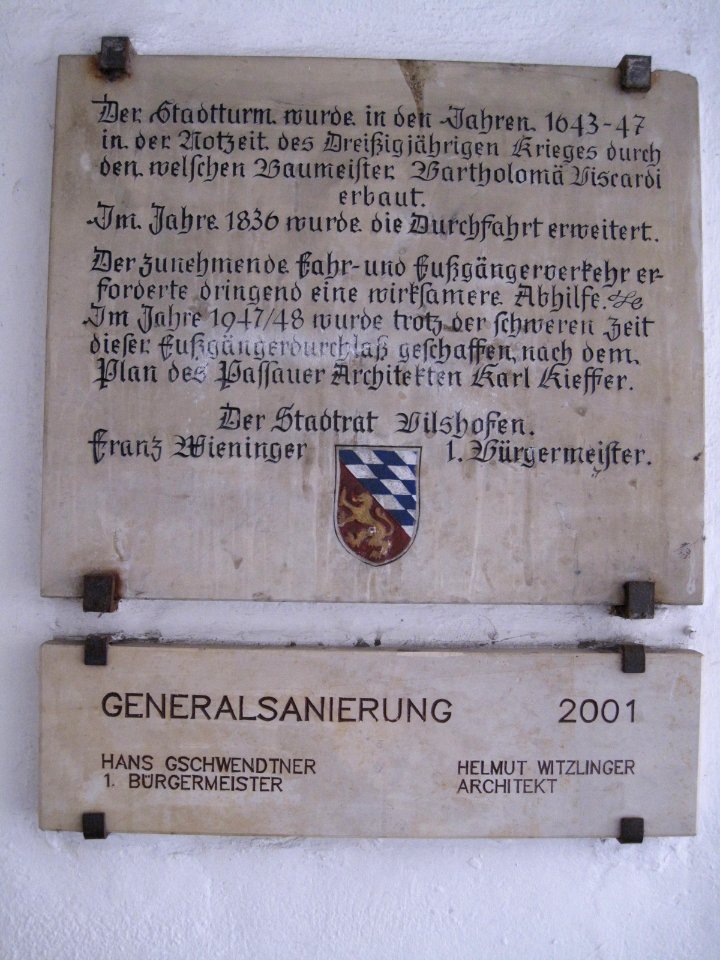 Der Stadtturm wurde in den Jahren 1643-47
in der Notzeit des Dreißigjährigen Krieges durch
den welschen Baumeister Bartholomä Viscardi
erbaut.
Im Jahre 1836 wurde die Durchfahrt erweitert.
Der zunehmende Fahr- und Fußgängerverkehr er-
forderte dringend eine wirksamere Abhilfe.
Im Jahre 1947/48 wurde trotz der schweren Zeit
dieser Fußgängerdurchlaß geschaffen, nach dem
Plan des Passauer Architekten Karl Kieffer.
Der Stadtrat Vilshofen.
Franz Wieninger 1. Bürgermeister.
GENERALSANIERUNG 2001
HANS GSCHWENDTNER HELMUT WITZLINGER
1. BÜRGERMEISTER ARCHITEKT